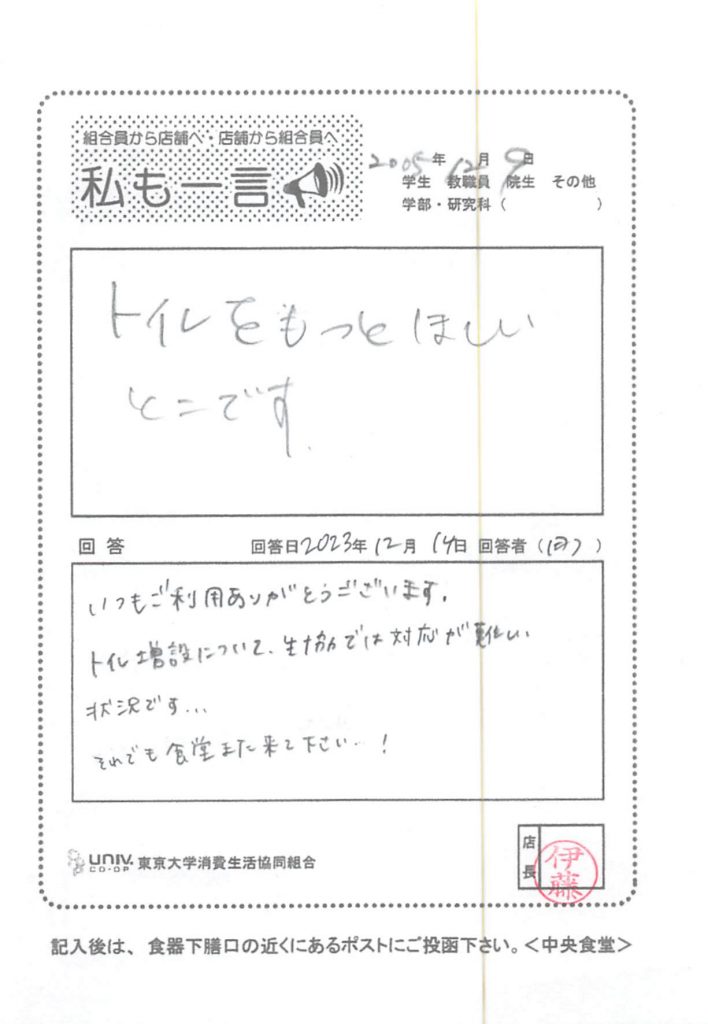 組合員から店舗へ・店舗から組合員へ
私も一言
2005年 12月 9日
学生 教職員 院生 その他
学部・研究科( )
トイレをもっとほしい
とこです.
回答 回答日2023年12月14日 回答者( )
いつもご利用ありがとうございます。
トイレ増設について、生協では対応が難しい
状況です...
それでも食堂また来て下さい…!
UNIV. CO-OP 東京大学消費生活協同組合
店長 伊藤
記入後は、食器下膳口の近くにあるポストにご投函下さい。<中央食堂>